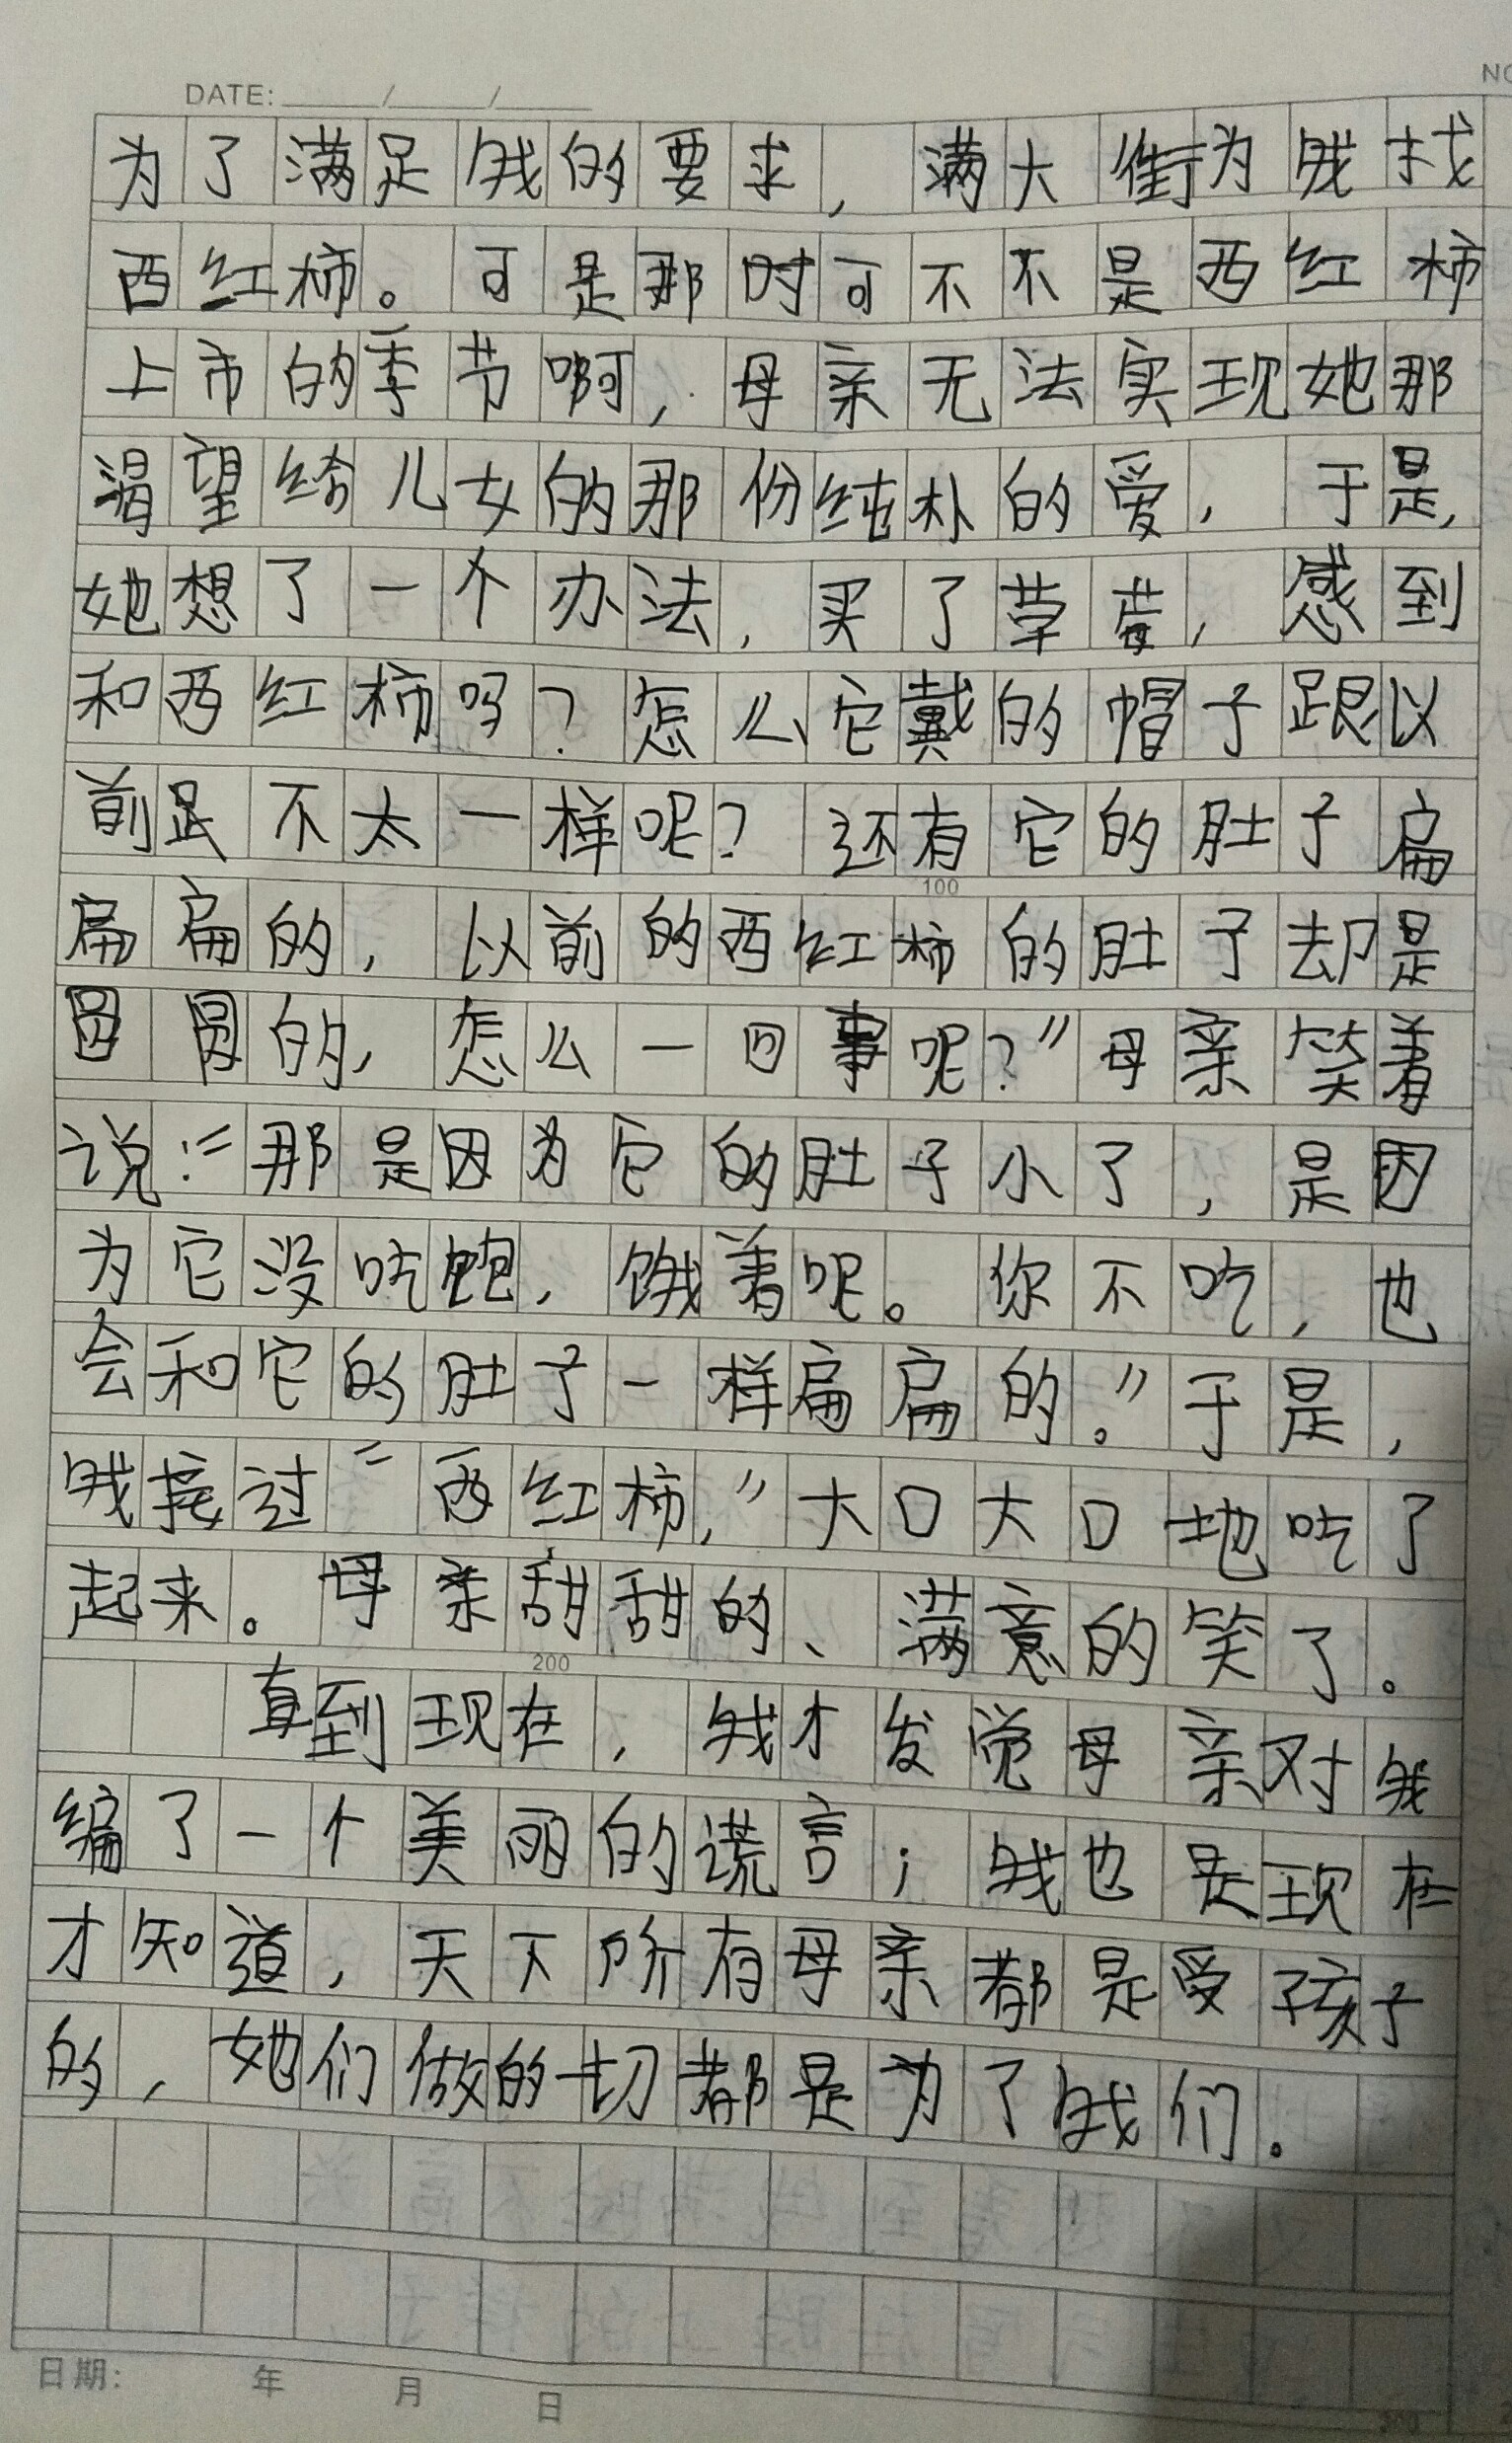 DATE: / /
NO
为了满足我的要求，满大街为我找
西红柿。可是那时可不不是西红柿
上市的季节啊，母亲无法实现她那
渴望给儿女的那份纯朴的爱，于是，
她想了一个办法，买了草莓，感到
和西红柿吗？怎么它戴的帽子跟以
前不太一样呢？还有它的肚子扁
扁扁的，以前的西红柿的肚子却是
圆圆的，怎么一回事呢？”母亲笑着
说：“那是因为它的肚子小了，是因
为它没吃饱，饿着呢。你不吃，也
会和它的肚子一样扁扁的。”于是，
我接过“西红柿，”大口大口地吃了
起来。母亲甜甜的、满意的笑了。
直到现在，我才发觉母亲对我
编了一个美丽的谎言；我也是现在
才知道，天下所有母亲都是爱孩子
的，她们做的一切都是为了我们。
100
200
300
日期： 年 月 日